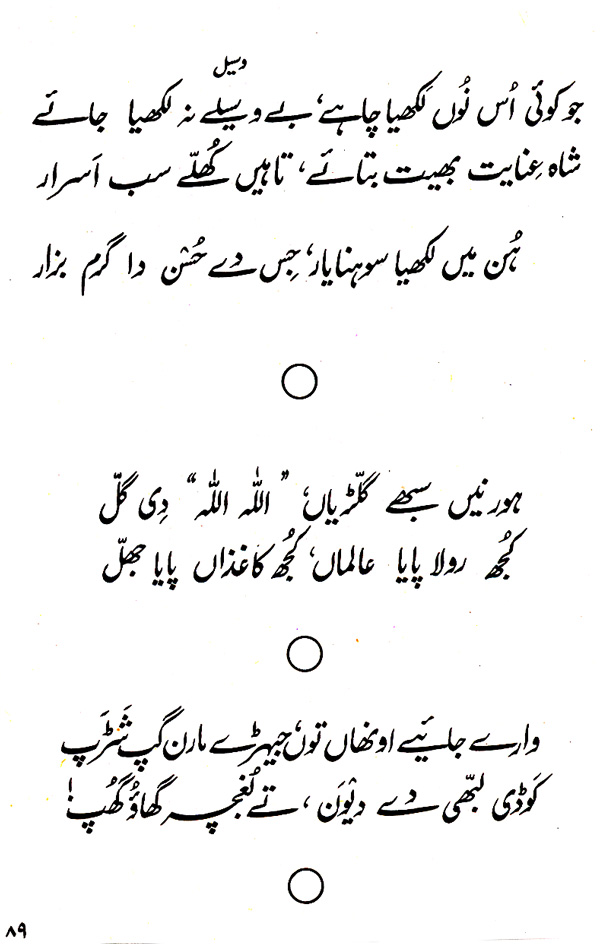 وسیل
جو کوئی اُس نُوں لَکھیا چاہے، بے ویسلے نہ لکھیا جائے
شاہ عِنایت بھیت بتائے، تاہیں کُھلّے سب اَسرار
ہُن میں لکھیا سوہنا یار، جِس دے حُسْن دا گرم بزار
ہور نیں سبھے گلّڑیاں، ”اللہ اللہ“ دِی گلّ
کُجھ رولا پایا عالماں، کُجھ کاغذاں پایا جھلّ
وارے جائیے اونھاں توں، جیہڑے مارن گپ شَڑَپ
کَوڈی لبّھی دے دیْوَن، تے بُغچہ گھاؤُ گُھپ!
۸۹